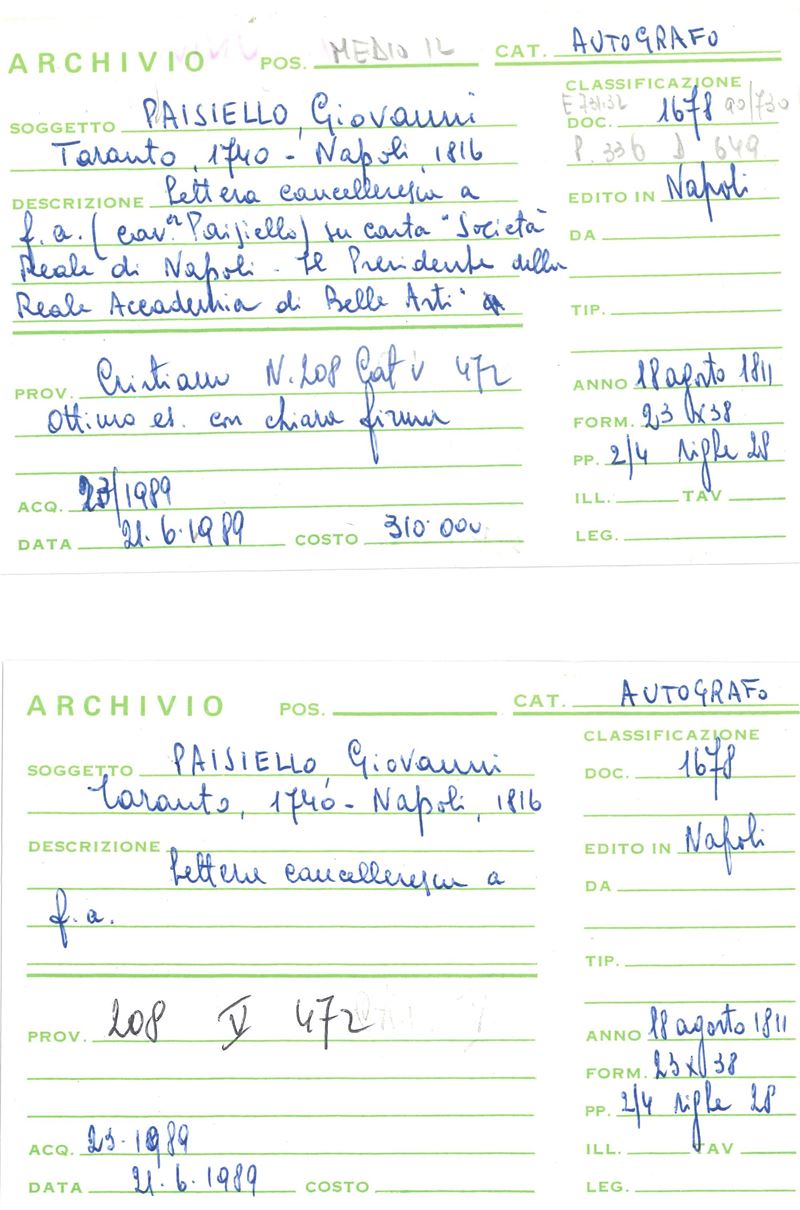 ARCHIVIO POS. MEDIO IL CAT. AUTOGRAFO
CLASSIFICAZIONE
SOGGETTO PAISIELLO, Giovanni
DOC. 1678 90/730
Taranto, 1740 - Napoli, 1816
P. 336 D 649
DESCRIZIONE Lettera cancelleresca a
EDITO IN Napoli
f. a. (cav.er Paisiello) su carta "Società
DA
Reale di Napoli - Il Presidente della
Reale Accademia di Belle Arti"
TIP.
PROV. Cristiano N. 208 Cat V 472
ANNO 18 agosto 1811
Ottimo es. con chiara firma
FORM. 23 x 38
PP. 2/4 righe 28
ACQ. 23/1989
ILL. TAV
DATA 21.6.1989 COSTO 310.000
LEG.
ARCHIVIO POS. CAT. AUTOGRAFO
CLASSIFICAZIONE
SOGGETTO PAISIELLO, Giovanni
DOC. 1678
Taranto, 1740 - Napoli, 1816
DESCRIZIONE
EDITO IN Napoli
Lettera cancelleresca a
DA
f. a.
TIP.
PROV. 208 V 472
ANNO 18 agosto 1811
FORM. 23 x 38
PP. 2/4 righe 28
ACQ. 23.1989
ILL. TAV
DATA 21.6.1989 COSTO
LEG.